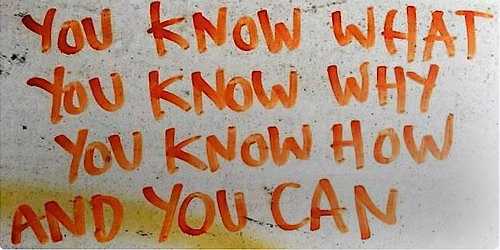 YOU KNOW WHAT
YOU KNOW WHY
YOU KNOW HOW
AND YOU CAN